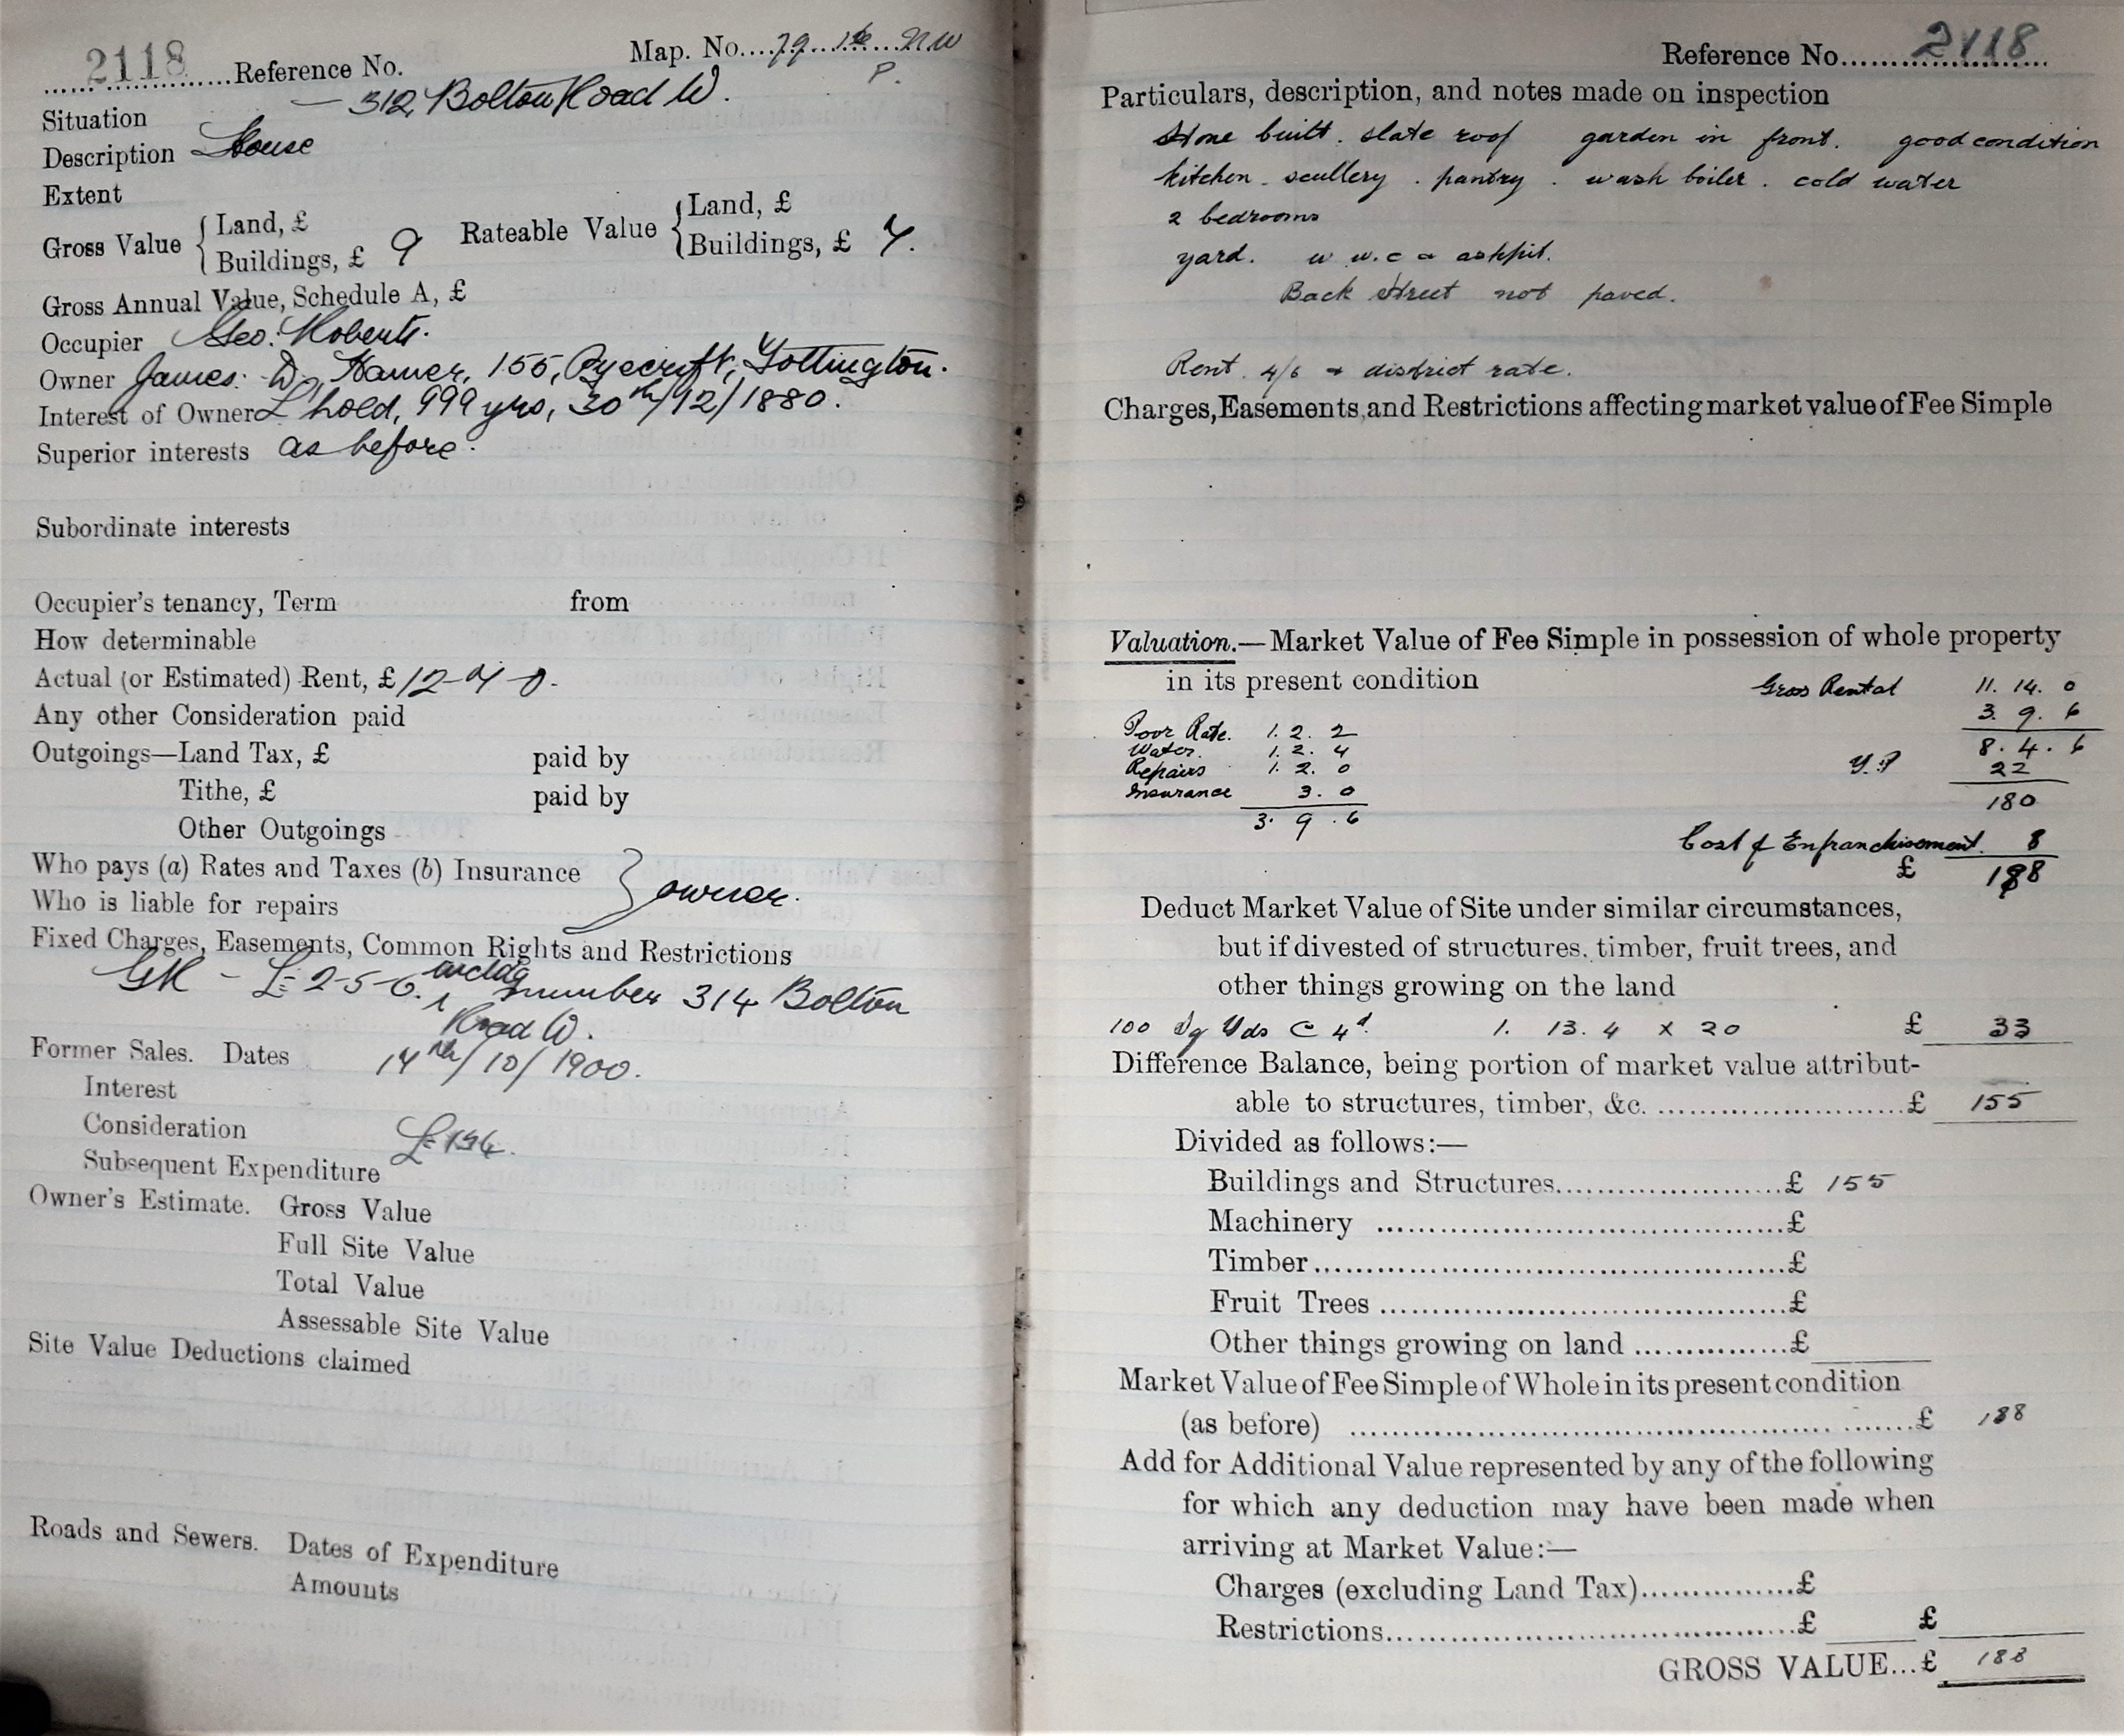 2118 Reference No. Map. No. 79 NW
P.
Situation — 312, Bolton Road W.
Description House
Extent
Gross Value { Land, £
Buildings, £ 9
Rateable Value { Land, £
Buildings, £ 7.
Gross Annual Value, Schedule A, £
Occupier Geo: Roberts.
Owner James. D, Hamer, 155, Ryecroft, Tottington.
Interest of Owner L'hold, 999 yrs, 30th/12/1880.
Superior interests as before.
Subordinate interests
Occupier's tenancy, Term from
How determinable
Actual (or Estimated) Rent, £ 12-7-0.
Any other Consideration paid
Outgoings—Land Tax, £ paid by
Tithe, £ paid by
Other Outgoings
Who pays (a) Rates and Taxes (b) Insurance
} owner.
Who is liable for repairs
Fixed Charges, Easements, Common Rights and Restrictions
GR - £2-5-6. incldg number 314 Bolton
Road W.
Former Sales. Dates 14th/10/1900.
Interest
Consideration
Subsequent Expenditure
Owner's Estimate. Gross Value
Full Site Value
Total Value
Assessable Site Value
Site Value Deductions claimed
Roads and Sewers. Dates of Expenditure
Amounts
Reference No. 2118
Particulars, description, and notes made on inspection
Stone built. slate roof garden in front. good condition
kitchen. scullery. pantry. wash boiler. cold water
2 bedrooms
yard. w w.c & ashpit.
Back street not paved.
Rent. 4/6 + district rate.
Charges, Easements, and Restrictions affecting market value of Fee Simple
Valuation.—Market Value of Fee Simple in possession of whole property
in its present condition
Gross Rental 11. 14. 0
3. 9. 6
8. 4. 6
Y.P 22
180
Poor Rate. 1. 2. 2
Water. 1. 2. 4
Repairs 1. 2. 0
Insurance 3. 0
3. 9. 6
Cost of Enfranchisement. 8
£ 188
Deduct Market Value of Site under similar circumstances,
but if divested of structures, timber, fruit trees, and
other things growing on the land
100 Sq Yds @ 4d. 1. 13. 4 x 20 £ 33
Difference Balance, being portion of market value attribut-
able to structures, timber, &c. £ 155
Divided as follows:—
Buildings and Structures £ 155
Machinery £
Timber £
Fruit Trees £
Other things growing on land £
Market Value of Fee Simple of Whole in its present condition
(as before) £ 188
Add for Additional Value represented by any of the following
for which any deduction may have been made when
arriving at Market Value:—
Charges (excluding Land Tax) £
Restrictions £ £
GROSS VALUE...£ 188